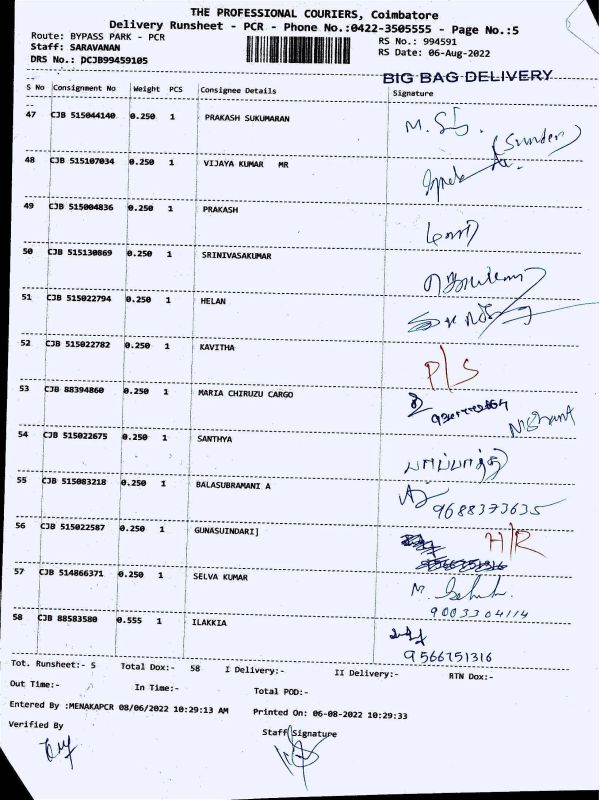 THE PROFESSIONAL COURIERS, Coimbatore
Delivery Runsheet - PCR - Phone No.:0422-3505555 - Page No.:5
Route: BYPASS PARK - PCR
RS No.: 994591
Staff: SARAVANAN
RS Date: 06-Aug-2022
DRS No.: DCJB99459105
BIG BAG DELIVERY
S No Consignment No Weight PCS Consignee Details Signature
47 CJB 515044140 0.250 1 PRAKASH SUKUMARAN
(Sunder)
48 CJB 515107034 0.250 1 VIJAYA KUMAR MR
49 CJB 515004836 0.250 1 PRAKASH
50 CJB 515130869 0.250 1 SRINIVASAKUMAR
51 CJB 515022794 0.250 1 HELAN
52 CJB 515022782 0.250 1 KAVITHA P/S
53 CJB 88394860 0.250 1 MARIA CHIRUZU CARGO
Nishant
54 CJB 515022675 0.250 1 SANTHYA பாப்பாத்தி
55 CJB 515083218 0.250 1 BALASUBRAMANI A
9688373635
56 CJB 515022587 0.250 1 GUNASUINDARI] H/R
57 CJB 514866371 0.250 1 SELVA KUMAR
9003304114
58 CJB 88583580 0.555 1 ILAKKIA
9566751316
Tot. Runsheet:- 5 Total Dox:- 58 I Delivery:- II Delivery:- RTN Dox:-
Out Time:- In Time:- Total POD:-
Entered By :MENAKAPCR 08/06/2022 10:29:13 AM Printed On: 06-08-2022 10:29:33
Verified By Staff Signature